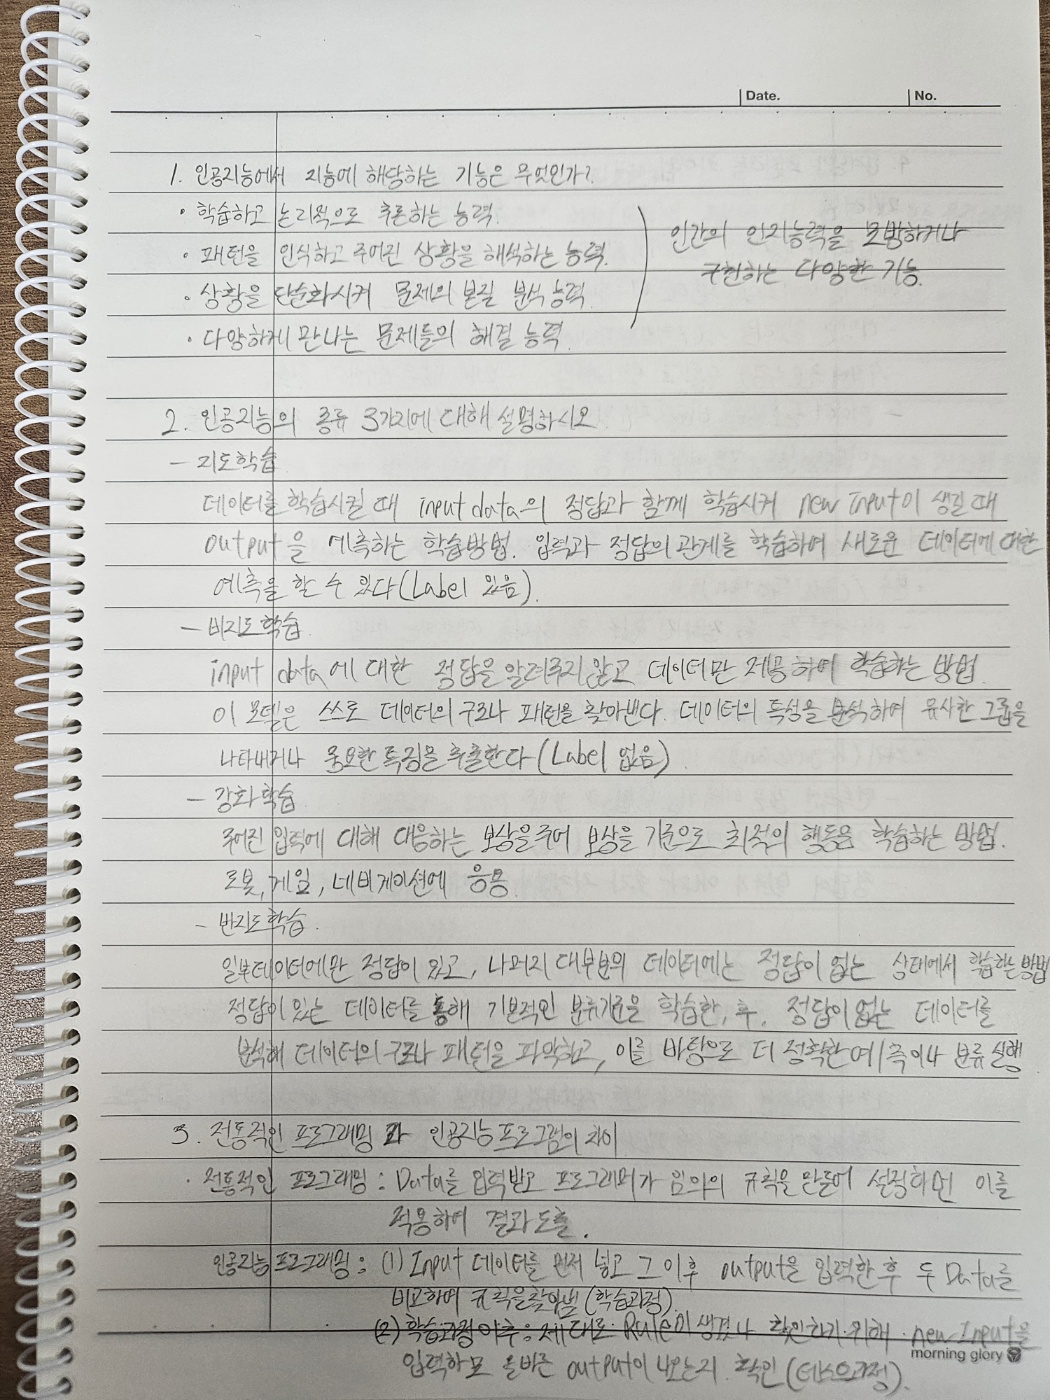 Date.
No.
1. 인공지능에서 지능에 해당하는 기능은 무엇인가?
· 학습하고 논리적으로 추론하는 능력.
· 패턴을 인식하고 주어진 상황을 해석하는 능력.
· 상황을 단순화시켜 문제의 본질 분석 능력
· 다양하게 만나는 문제들의 해결 능력.
인간의 인지능력을 모방하거나
구현하는 다양한 기능.
2. 인공지능의 종류 3가지에 대해 설명하시오
- 지도학습
데이터를 학습시킬 때 input data의 정답과 함께 학습시켜 new input이 생길 때
output을 예측하는 학습방법. 입력과 정답의 관계를 학습하여 새로운 데이터에 대한
예측을 할 수 있다(Label 있음).
- 비지도학습.
input data에 대한 정답을 알려주지 않고 데이터만 제공하여 학습하는 방법.
이 모델은 쓰로 데이터의 구조나 패턴을 찾아낸다. 데이터의 특성을 분석하여 유사한 그룹을
나타내거나 중요한 특징을 추출한다 (Label 없음)
- 강화학습
주어진 입력에 대해 대응하는 보상을 주어 보상을 기준으로 최적의 행동을 학습하는 방법.
로봇, 게임, 네비게이션에 응용.
- 반지도학습.
일부데이터에만 정답이 있고, 나머지 대부분의 데이터에는 정답이 없는 상태에서 학습하는 방법
정답이 있는 데이터를 통해 기본적인 분류기준을 학습한, 후, 정답이 없는 데이터를
분석해 데이터의 구조나 패턴을 파악하고, 이를 바탕으로 더 정확한 예측이나 분류 실행
3. 전통적인 프로그래밍과 인공지능프로그램의 차이
· 전통적인 프로그래밍 : Data를 입력받고 프로그래머가 임의의 규칙을 만들어 설정하면 이를
적용하여 결과 도출.
인공지능 프로그래밍 : (1) Input 데이터를 먼저 넣고 그 이후 output을 입력한 후 두 Data를
비교하여 규칙을 찾아냄 (학습과정).
(2) 학습과정 이후 : 제대로 Rule이 생겼나 확인하기 위해 new Input을
입력하고 올바른 output이 나오는지 확인 (테스트과정).
morning glory